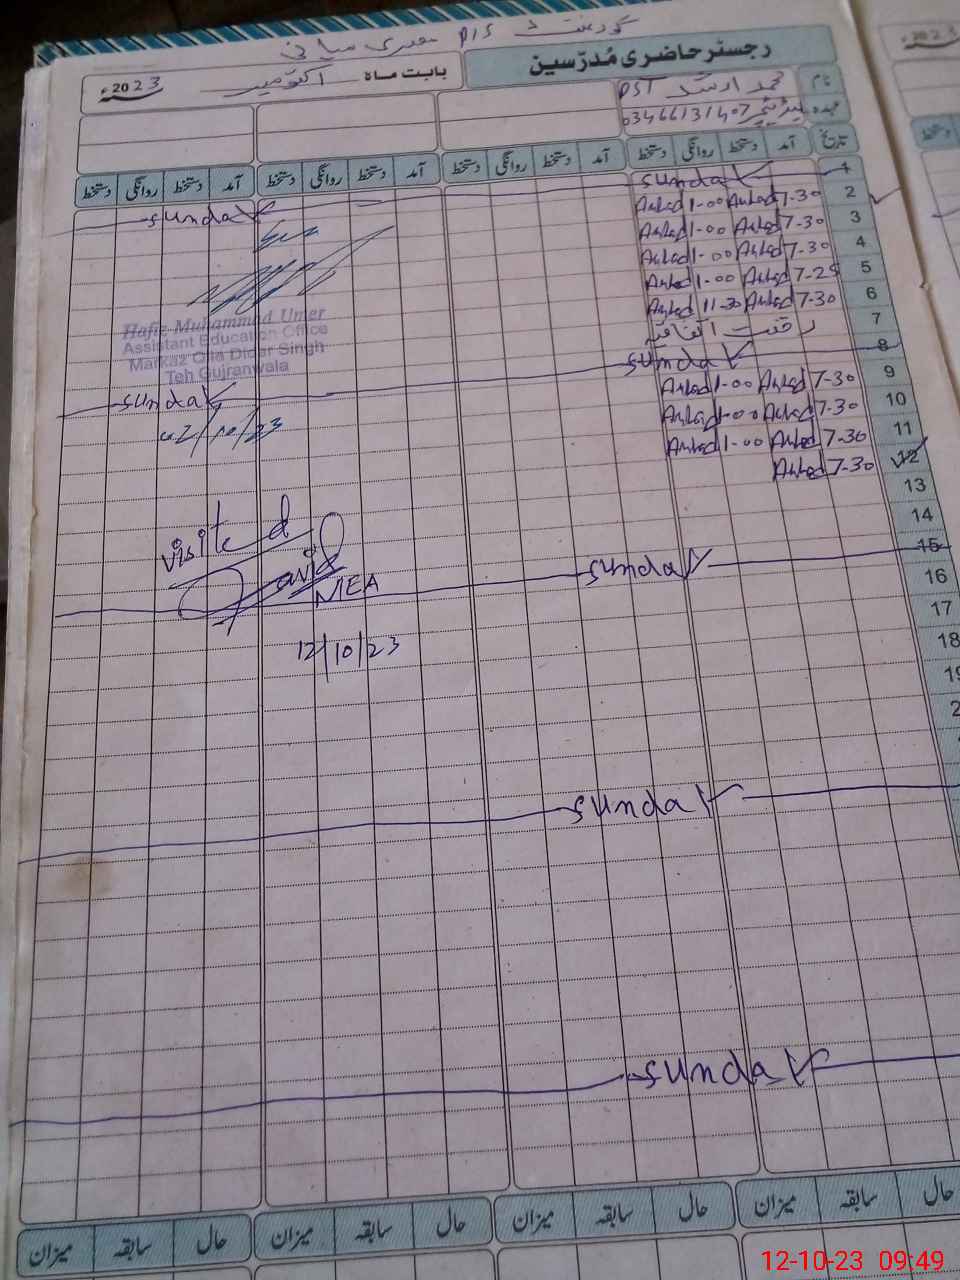 گورنمنٹ P/S
رجسٹر حاضری مُدرّسین
بابت ماہ اکتوبر
2023ء
نام محمد ارشد PST
عہدہ ہیڈ ٹیچر 03466131407
تاریخ آمد دستخط روانگی دستخط آمد دستخط روانگی دستخط آمد دستخط روانگی دستخط آمد دستخط روانگی دستخط
1 Sunday Sunday
2 7-30 Arshad 1-00 Arshad
3 7-30 Arshad 1-00 Arshad
4 7-30 Arshad 1-00 Arshad
5 7-25 Arshad 1-00 Arshad
6 7-30 Arshad 11-30 Arshad
7 رخصت اتفاقیہ
Hafiz Muhammad Umer
Assistant Education Office
Markaz Qila Didar Singh
Teh Gujranwala
8 Sunday Sunday
02/10/23
9 7-30 Arshad 1-00 Arshad
10 7-30 Arshad 1-00 Arshad
11 7-30 Arshad 1-00 Arshad
12 7-30 Arshad
13
14
visited
Javid
MEA
12/10/23
15 Sunday
16
17
18
19
2
Sunday
Sunday
حال سابقہ میزان حال سابقہ میزان حال سابقہ میزان حال سابقہ میزان
12-10-23 09:49